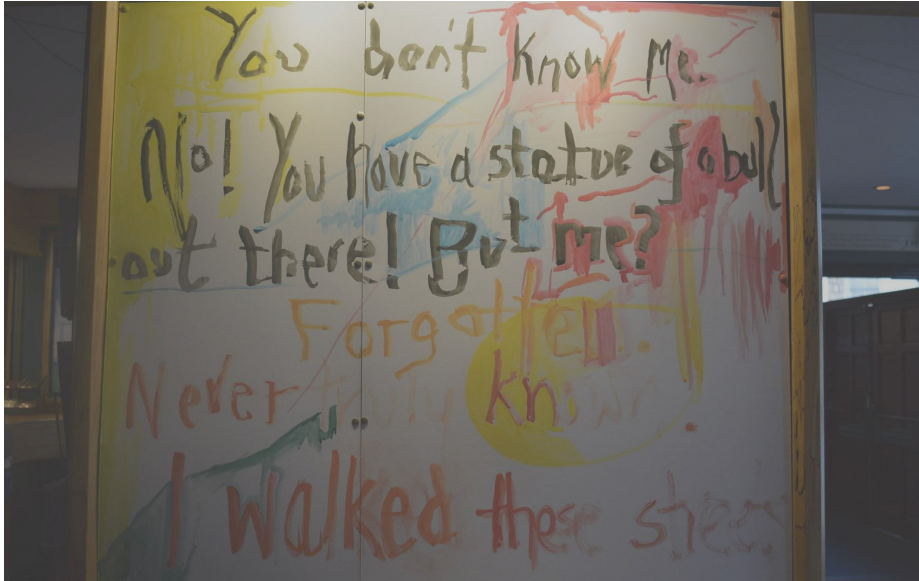 You don't know me.
No! You have a statue of a bull
out there! But me?
Forgotten.
Never truly known.
I walked these streets